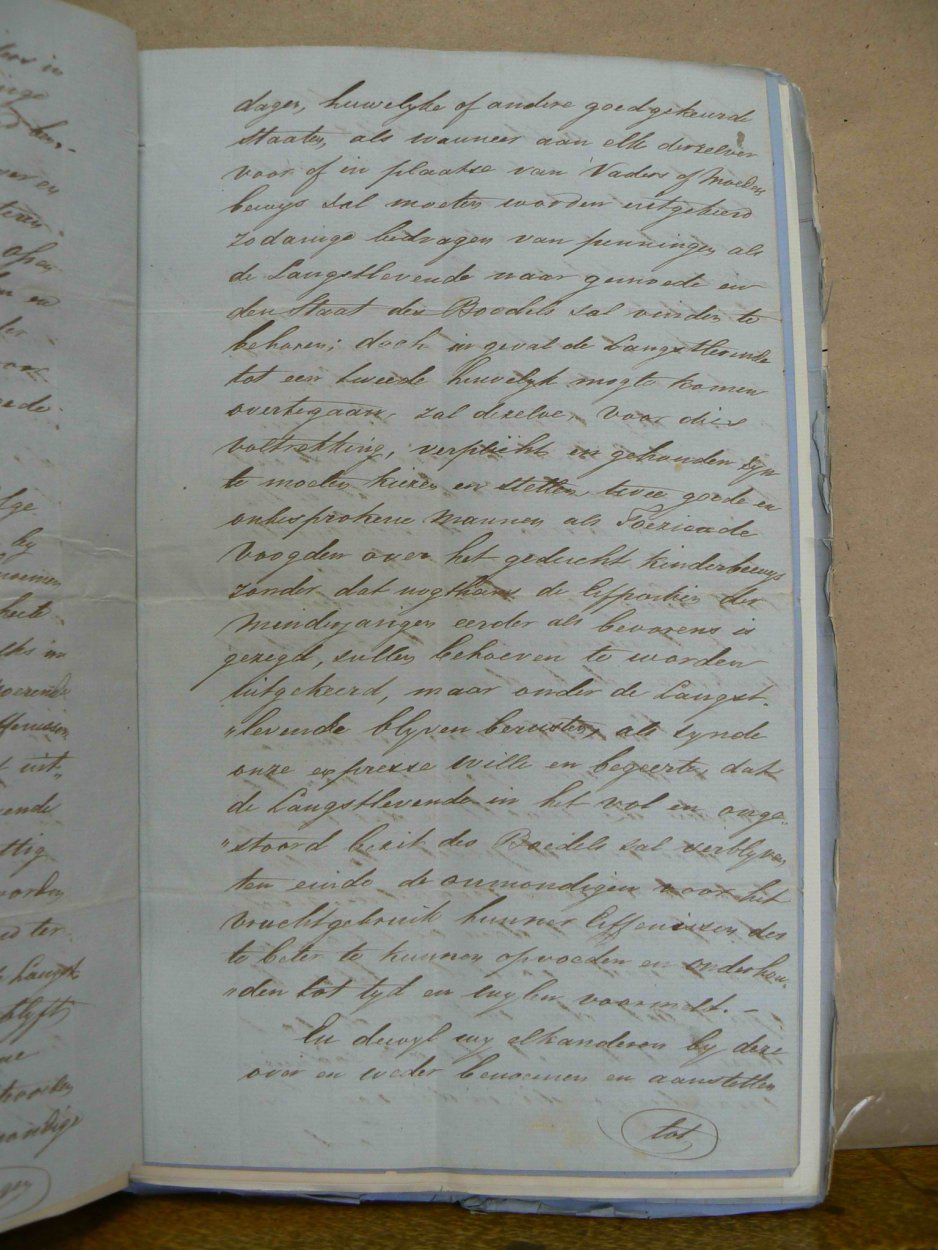 dagen, huwelyke of andere goedgekeurde
staaten, als wanneer aan elk derzelver
voor of in plaatse van Vaders of Moeders
bewys sal moeten worden uitgekeerd
zodanige bedragen van penningen als
de Langstlevende naar gemoede en
den Staat des Boedels sal vinden te
behoren; doch in geval de Langstlevende
tot een tweede huwelyk mogte komen
overtegaan, zal dezelve, voor dies
voltrekking, verplicht en gehouden zyn
te moeten kiezen en stellen, twee goede en
onbesprokene Mannen als Toeziende
Voogden over het geducht kinderbewys
zonder dat nogthans de Effportien der
Minderjarigen eerder als bevorens is
gezegd, sullen behoeven te worden
uitgekeerd, maar onder de Langst-
"levende blyven berusten, als synde
onze expresse wille en begeerte, dat
de Langstlevende in het vol en onge-
"stoord bezit des Boedels sal verblyven
ten einde de onmondigen voor het
vruchtgebruik hunner Effenissen des
te beter te kunnen opvoeden en onderhou-
"den tot tyd en wylen voormelt. –
En dewyl wy elkanderen by deze
over en weder benoemen en aanstellen
tot